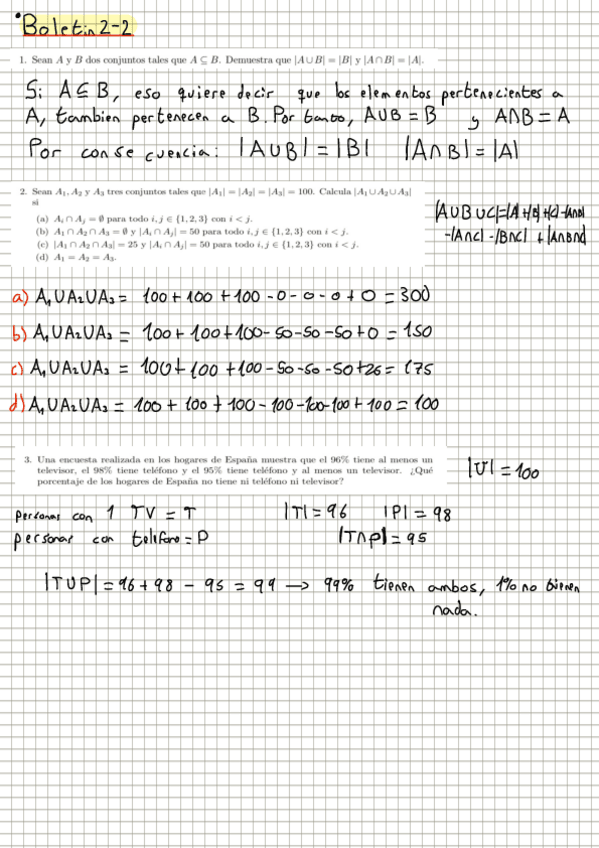 Boletín 2-2
1. Sean A y B dos conjuntos tales que A ⊆ B. Demuestra que |A ∪ B| = |B| y |A ∩ B| = |A|.
Si A ⊆ B, eso quiere decir que los elementos pertenecientes a
A, tambien pertenecen a B. Por tanto, A∪B = B y A∩B = A
Por consecuencia: |A∪B| = |B| |A∩B| = |A|
2. Sean A₁, A₂ y A₃ tres conjuntos tales que |A₁| = |A₂| = |A₃| = 100. Calcula |A₁ ∪ A₂ ∪ A₃|
si
(a) Aᵢ ∩ Aⱼ = ∅ para todo i, j ∈ {1, 2, 3} con i < j.
(b) A₁ ∩ A₂ ∩ A₃ = ∅ y |Aᵢ ∩ Aⱼ| = 50 para todo i, j ∈ {1, 2, 3} con i < j.
(c) |A₁ ∩ A₂ ∩ A₃| = 25 y |Aᵢ ∩ Aⱼ| = 50 para todo i, j ∈ {1, 2, 3} con i < j.
(d) A₁ = A₂ = A₃.
|A∪B∪C|=|A|+|B|+|C|-|A∩B|
-|A∩C|-|B∩C| + |A∩B∩C|
a) A₁∪A₂∪A₃ = 100 + 100 + 100 - 0 - 0 - 0 + 0 = 300
b) A₁∪A₂∪A₃ = 100 + 100 + 100 - 50 - 50 - 50 + 0 = 150
c) A₁∪A₂∪A₃ = 100 + 100 + 100 - 50 - 50 - 50 + 25 = 175
d) A₁∪A₂∪A₃ = 100 + 100 + 100 - 100 - 100 - 100 + 100 = 100
3. Una encuesta realizada en los hogares de España muestra que el 96% tiene al menos un
televisor, el 98% tiene teléfono y el 95% tiene teléfono y al menos un televisor. ¿Qué
porcentaje de los hogares de España no tiene ni teléfono ni televisor?
|U| = 100
personas con 1 TV = T |T| = 96 |P| = 98
personas con telefono = P |T∩P| = 95
|T∪P| = 96 + 98 - 95 = 99 → 99% tienen ambos, 1% no tienen
nada.